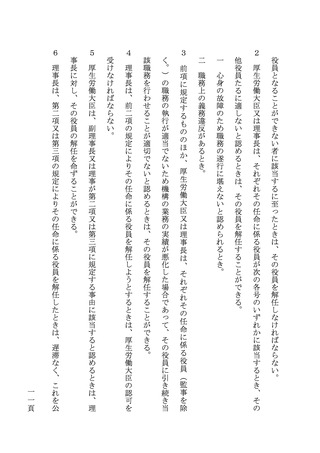 役員となることができない者に該当するに至ったときは、その役員を解任しなければならない。
２　厚生労働大臣又は理事長は、それぞれその任命に係る役員が次の各号のいずれかに該当するとき、その
他役員たるに適しないと認めるときは、その役員を解任することができる。
一　心身の故障のため職務の遂行に堪えないと認められるとき。
二　職務上の義務違反があるとき。
３　前項に規定するもののほか、厚生労働大臣又は理事長は、それぞれその任命に係る役員（監事を除
く。）の職務の執行が適当でないため機構の業務の実績が悪化した場合であって、その役員に引き続き当
該職務を行わせることが適切でないと認めるときは、その役員を解任することができる。
４　理事長は、前二項の規定によりその任命に係る役員を解任しようとするときは、厚生労働大臣の認可を
受けなければならない。
５　厚生労働大臣は、副理事長又は理事が第二項又は第三項に規定する事由に該当すると認めるときは、理
事長に対し、その役員の解任を命ずることができる。
６　理事長は、第二項又は第三項の規定によりその任命に係る役員を解任したときは、遅滞なく、これを公
一一頁